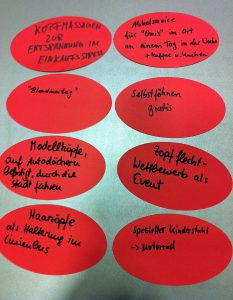 KOPFMASSAGEN
ZUR
ENTSPANNUNG IM
EINKAUFSSTRESS
Abholservice
für "Omis" im Ort
an einem Tag in der Woche
+ Kaffee u. Kuchen
"Blondinentag"
Selbstföhnen
gratis
Modellköpfe,
auf Autodächern
befestigt, durch die
Stadt fahren
Zopfflecht-
Wettbewerb als
Event
Haarzöpfe
als Halterung im
Linienbus
Spezieller Kinderstuhl
→ Motorrad